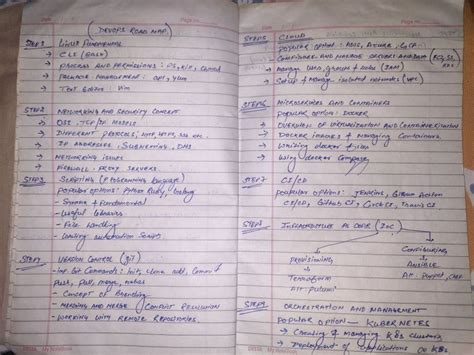 DEVOPS ROAD MAP
STEP 1 Linux Fundamental
→ CLI (Bash)
→ PROCESS AND PERMISSIONS : PS, kill, chmod
→ PACKAGE MANAGEMENT : apt, yum
→ Text Editor : Vim
STEP 2 NETWORKING AND SECURITY CONCEPT
→ OSI, TCP/IP MODELS
→ DIFFERENT PROTOCOLS, HTTP
→ IP ADDRESSES, SUBNETTING, DNS
→ NETWORKING ISSUES
→ FIREWALL, PROXY SERVERS
STEP 3 SCRIPTING (PROGRAMMING language)
POPULAR OPTIONS: Python Ruby, Golang
- Syntax & Fundamental
- Useful libraries
- File handling
- Writing automation Scripts
VERSION CONTROL (GIT)
Git Commands : init, clone, add, Commit
push, pull, merge
- Concept of Branching
- MERGING AND MERGE CONFLICT RESOLUTION
- WORKING WITH REMOTE REPOSITORIES.
STEP 5 CLOUD
Popular option : AWS, Azure, GCP
Configure and manage
→ Manage user groups & roles (IAM)
→ Setup & manage isolated networks (VPC)
STEP 6 MICROSERVICES AND CONTAINERS
Popular option : DOCKER
→ OVERVIEW OF VIRTUALIZATION AND CONTAINERIZATION
→ Docker images & Managing Containers
→ Writing docker files
→ Using docker Compose
STEP 7 CI/CD
popular options : JENKINS, Github Action
CI/CD, Gitlab CI, Circle CI, Travis CI
INFRASTRUCTURE AS CODE (IaC)
PROVISIONING
Terraform
Alt: Pulumi
Ansible
Alt: Puppet, Chef
STEP 9 ORCHESTRATION AND MANAGEMENT
POPULAR OPTION - KUBERNETES
→ Creating & Managing K8s clusters
→ Deployment of applications on K8s